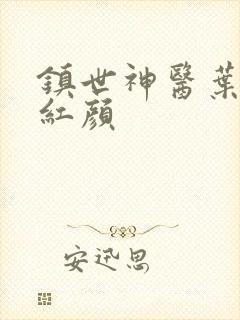 鎮世神醫葉
紅顏
安迅思